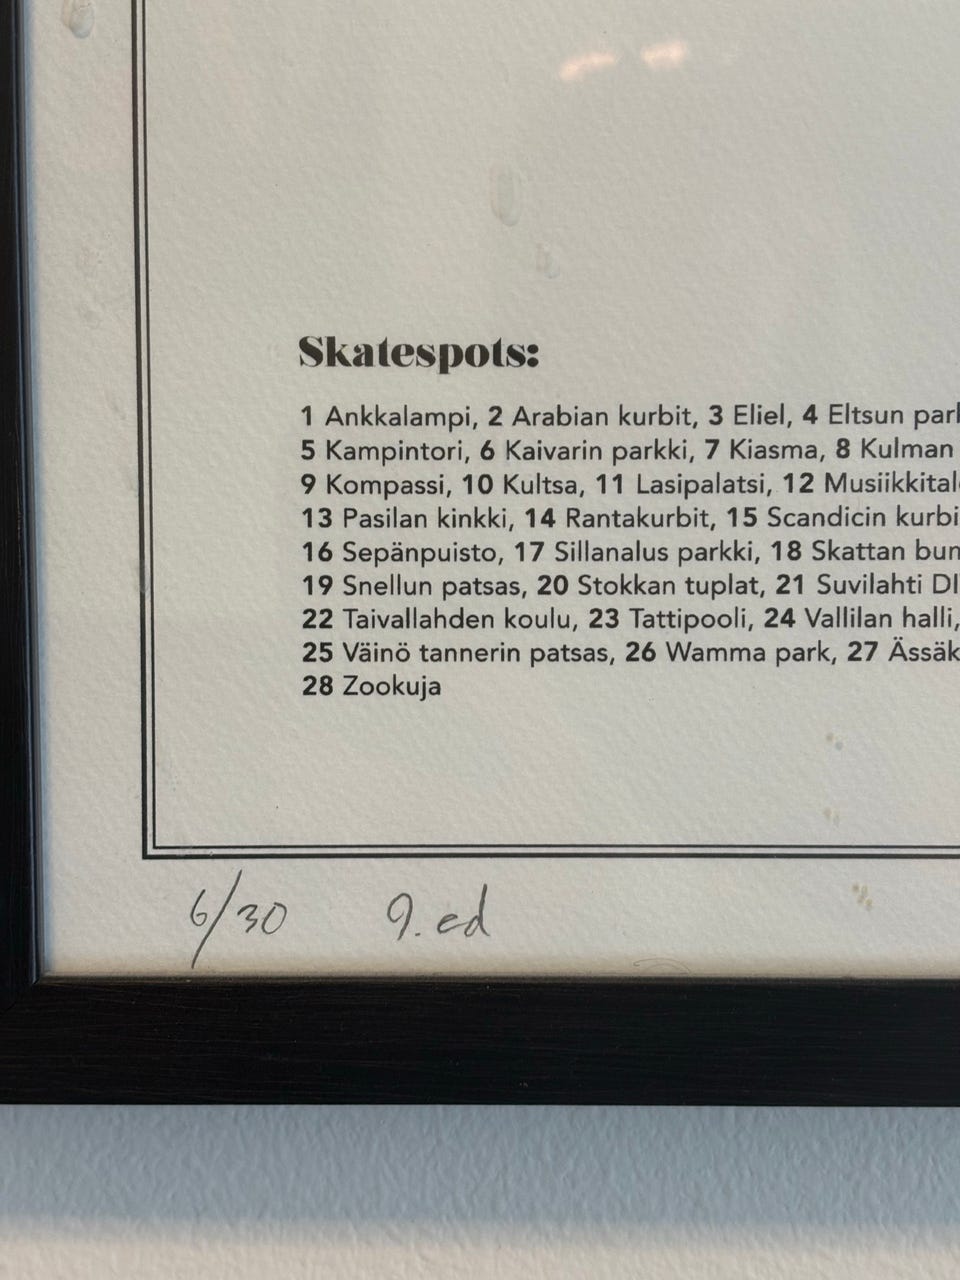 Skatespots:
1 Ankkalampi, 2 Arabian kurbit, 3 Eliel, 4 Eltsun
5 Kampintori, 6 Kaivarin parkki, 7 Kiasma, 8 Kulman
9 Kompassi, 10 Kultsa, 11 Lasipalatsi, 12
13 Pasilan kinkki, 14 Rantakurbit, 15 Scandicin
16 Sepänpuisto, 17 Sillanalus parkki, 18 Skattan
19 Snellun patsas, 20 Stokkan tuplat, 21 Suvilahti
22 Taivallahden koulu, 23 Tattipooli, 24 Vallilan halli,
25 Väinö tannerin patsas, 26 Wamma park, 27
28 Zookuja
6/30 9. ed